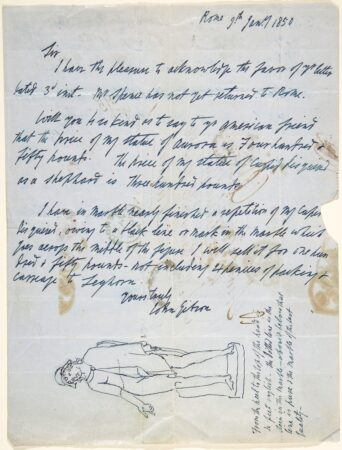 Rome 9th Jany 1850
Sir
I have the pleasure to acknowledge the favor of yr letter
dated 3d inst. Mr Spence has not yet returned to Rome.
Will you be so kind as to say to yr american friend
that the price of my statue of Aurora is Four hundred &
fifty pounds. The price of my statue of Cupid disguised
as a shepherd is three hundred pounds.
I have in marble nearly finished a repetition of my Cupid
disguised, owing to a black line or mark in the marble which
goes across the middle of the figure I will sell it for one hun
dred & fifty pounds - not including expences of packing &
carriage to Leghorn.
Yours truly
John Gibson
From the heel to the top of the head is
feet
the dotted line is the
in the marble - above & below that
line is pure & the marble of the best
quality.